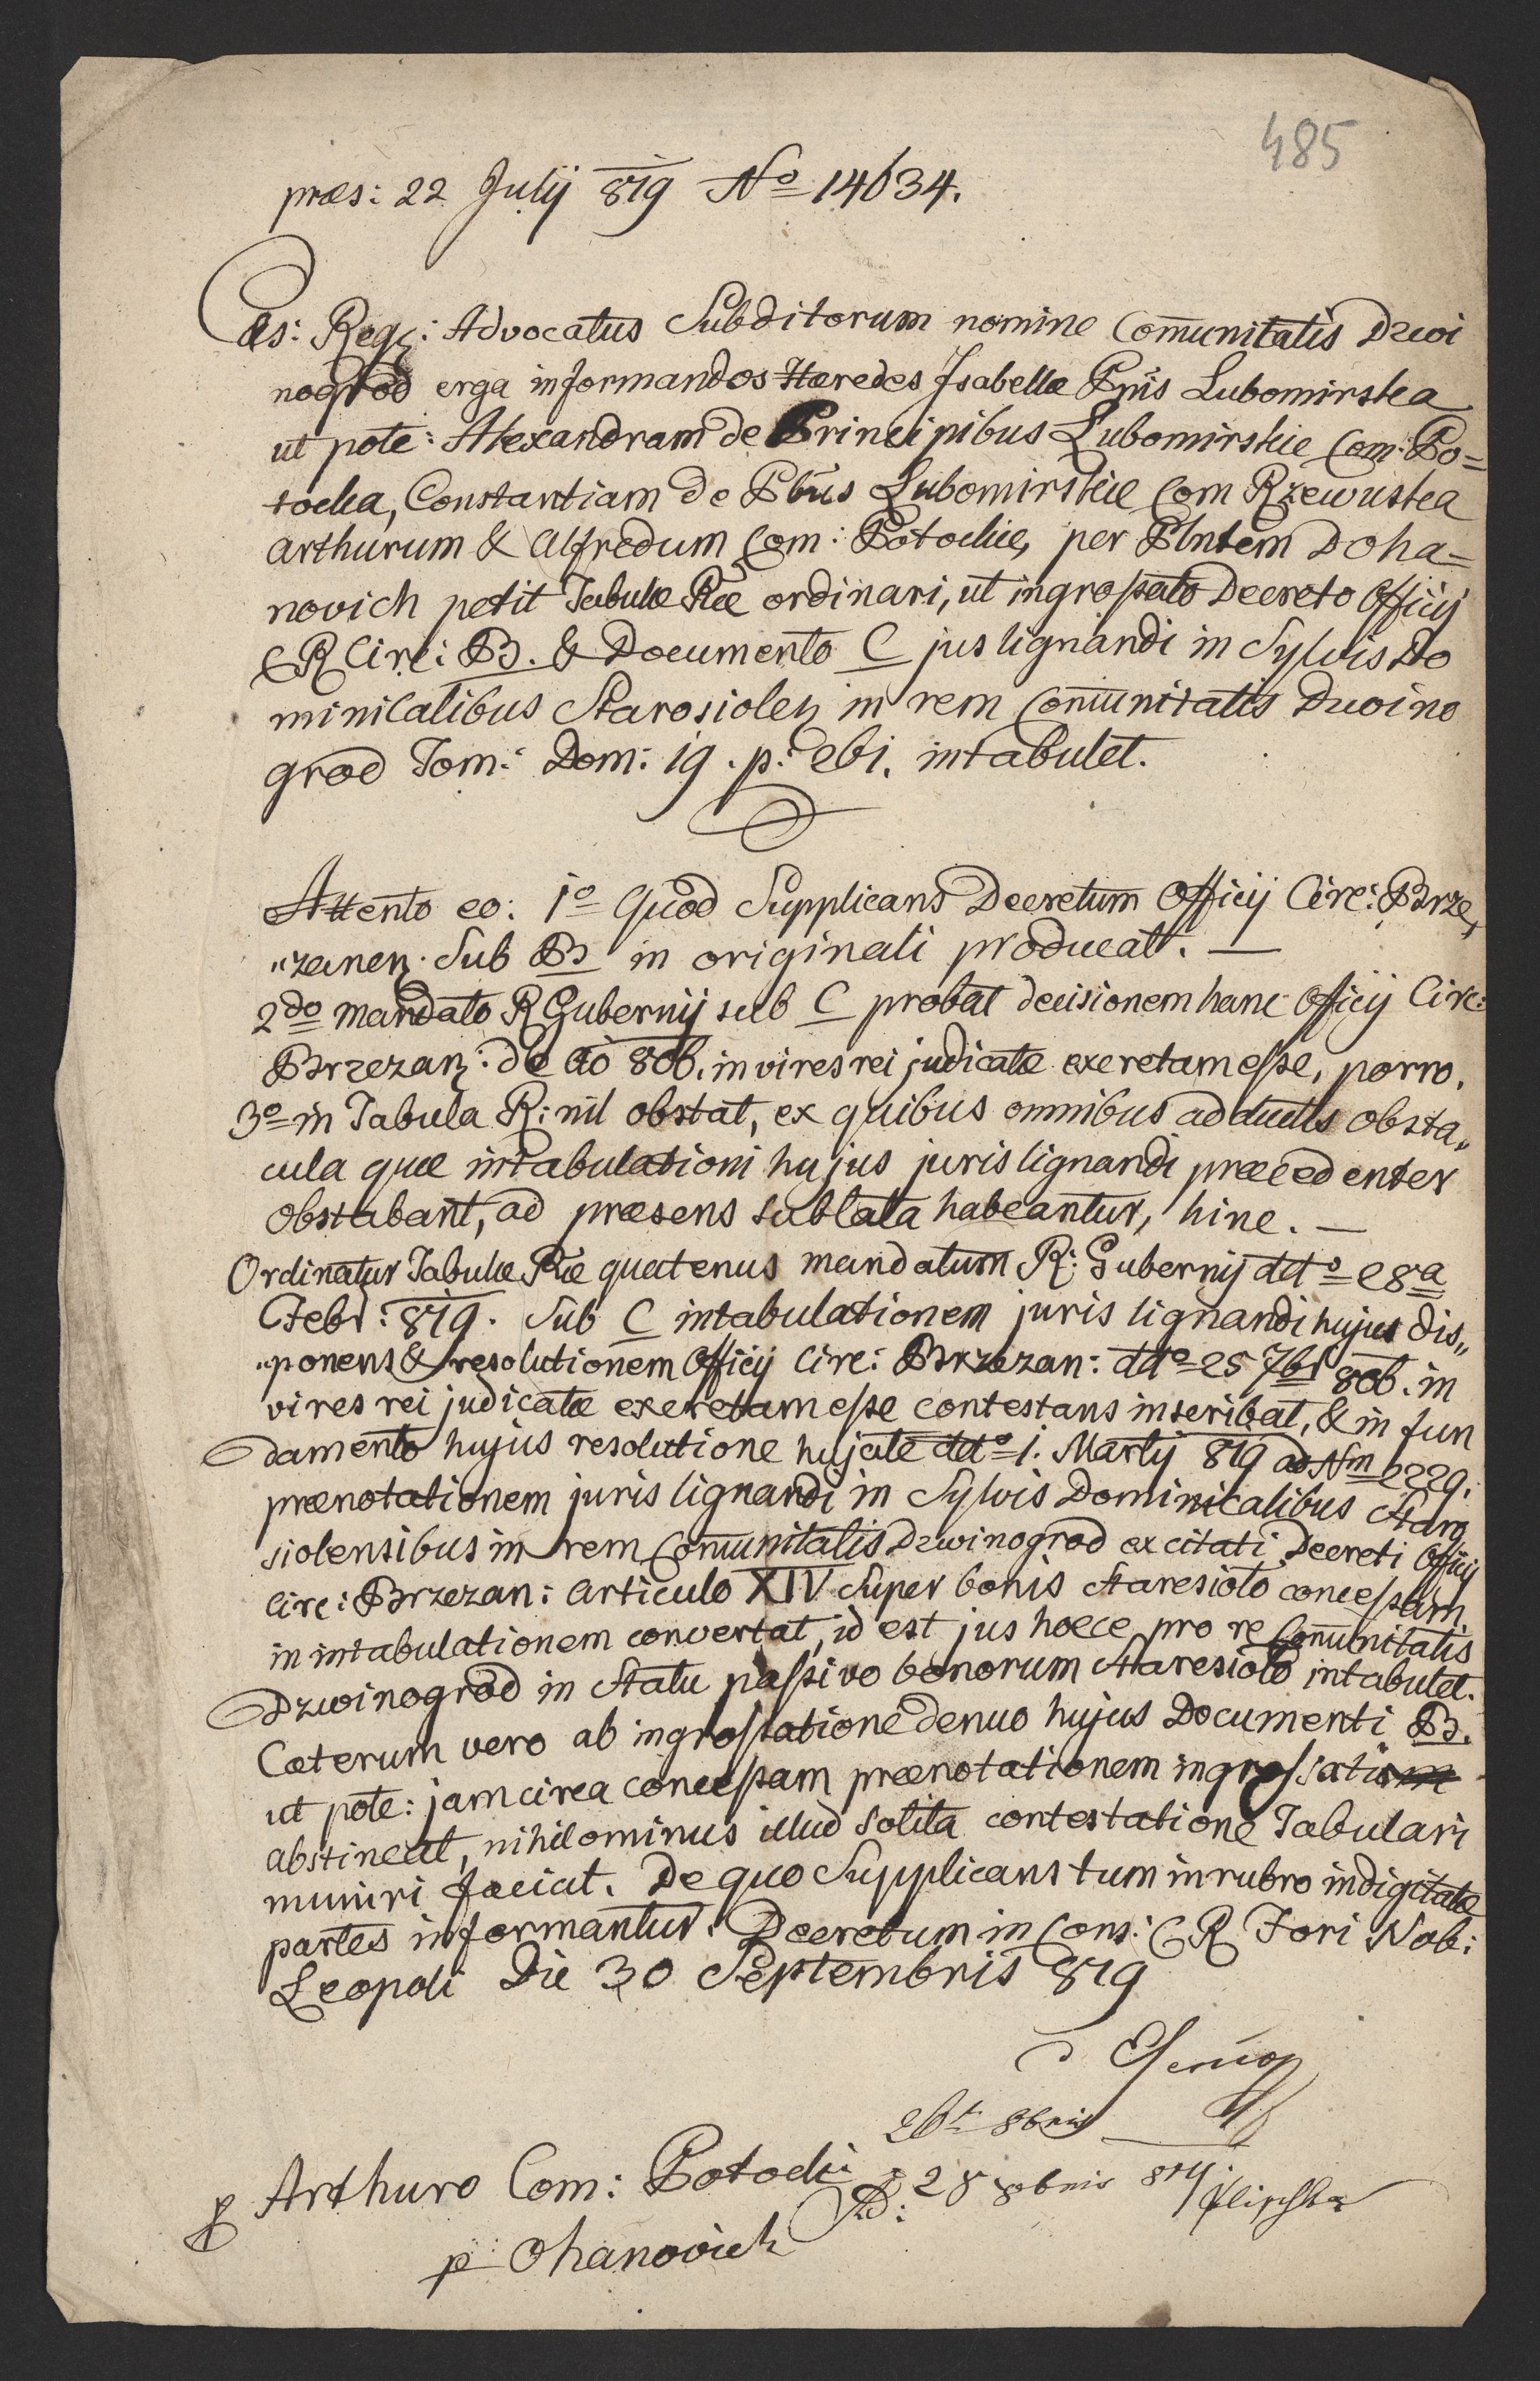 485
præs: 22 Julij 819 No 14634.
Cæs: Reg: Advocatus Subditorum nomine Com̄unitatis Dzwi
nogrod erga informandos Hæredes Isabellæ Pnis Lubomirska
ut pote: Alexandram de Principibus Lubomirskie Com: Po=
tocka, Constantiam de Pbus Lubomirskie Com Rzewuska
Arthurum & Alfredum Com: Potockie, per Plntem Doha=
novich petit Tabulæ Ræ ordinari, ut ingrossato Decreto Officij
CR Circ: B. & Documento C jus lignandi in Sylvis Do
minicalibus Starosiolen in rem Com̄unitatis Dzwino
grod Tom: Dom: 19. p: 261. intabulet.
Attento eo: 1o Quod Supplicans Decretum Officij Circ: Brze„
„zanen. Sub B in originali producat. —
2do Mandato R Gubernij sub C probat decisionem hanc Officij Circ:
Brzezan: de ao 806. in vires rei judicatæ excretam esse, porro.
3o in Tabula R: nil obstat, ex quibus omnibus adductis obsta„
cula quæ intabulationi hujus juris lignandi præcedenter
obstabant, ad præsens sublata habeantur, hinc. —
Ordinatur Tabulæ Ræ quatenus mandatum R: Gubernij ddto 28a
Febr: 819. Sub C intabulationem juris lignandi hujus dis„
„ponens & resolutionem Officij Circ: Brzezan: ddto 25 7br 806. in
vires rei judicatæ excretam esse contestans inscribat, & in fun
damento hujus resolutione hujate ddto 1. Martij 819 ad Nm 2229.
prænotationem juris lignandi in Sylvis Dominicalibus Staro
siolensibus in rem Com̄unitatis Dzwinogrod excitati Decreti Officij
Circ: Brzezan: Articulo XIV Super bonis Staresioło concessam
in intabulationem convertat, id est jus hocce pro re Com̄unitatis
Dzwinogrod in Statu passivo bonorum Staresioło intabulet.
Cæterum vero ab ingrossatione denuo hujus Documenti B.
ut pote: jam circa concessam prænotationem ingrossati
abstineat, nihilominus illud solita contestatione Tabulari
muniri faciat. De quo Supplicans tum in rubro indigitatæ
partes informantur. Decretum in Cons: CR Fori Nob:
Leopoli Die 30 Septembris 819
26t 8bris
Arthuro Com: Potocki
28 8bris 819
p Ohanovich